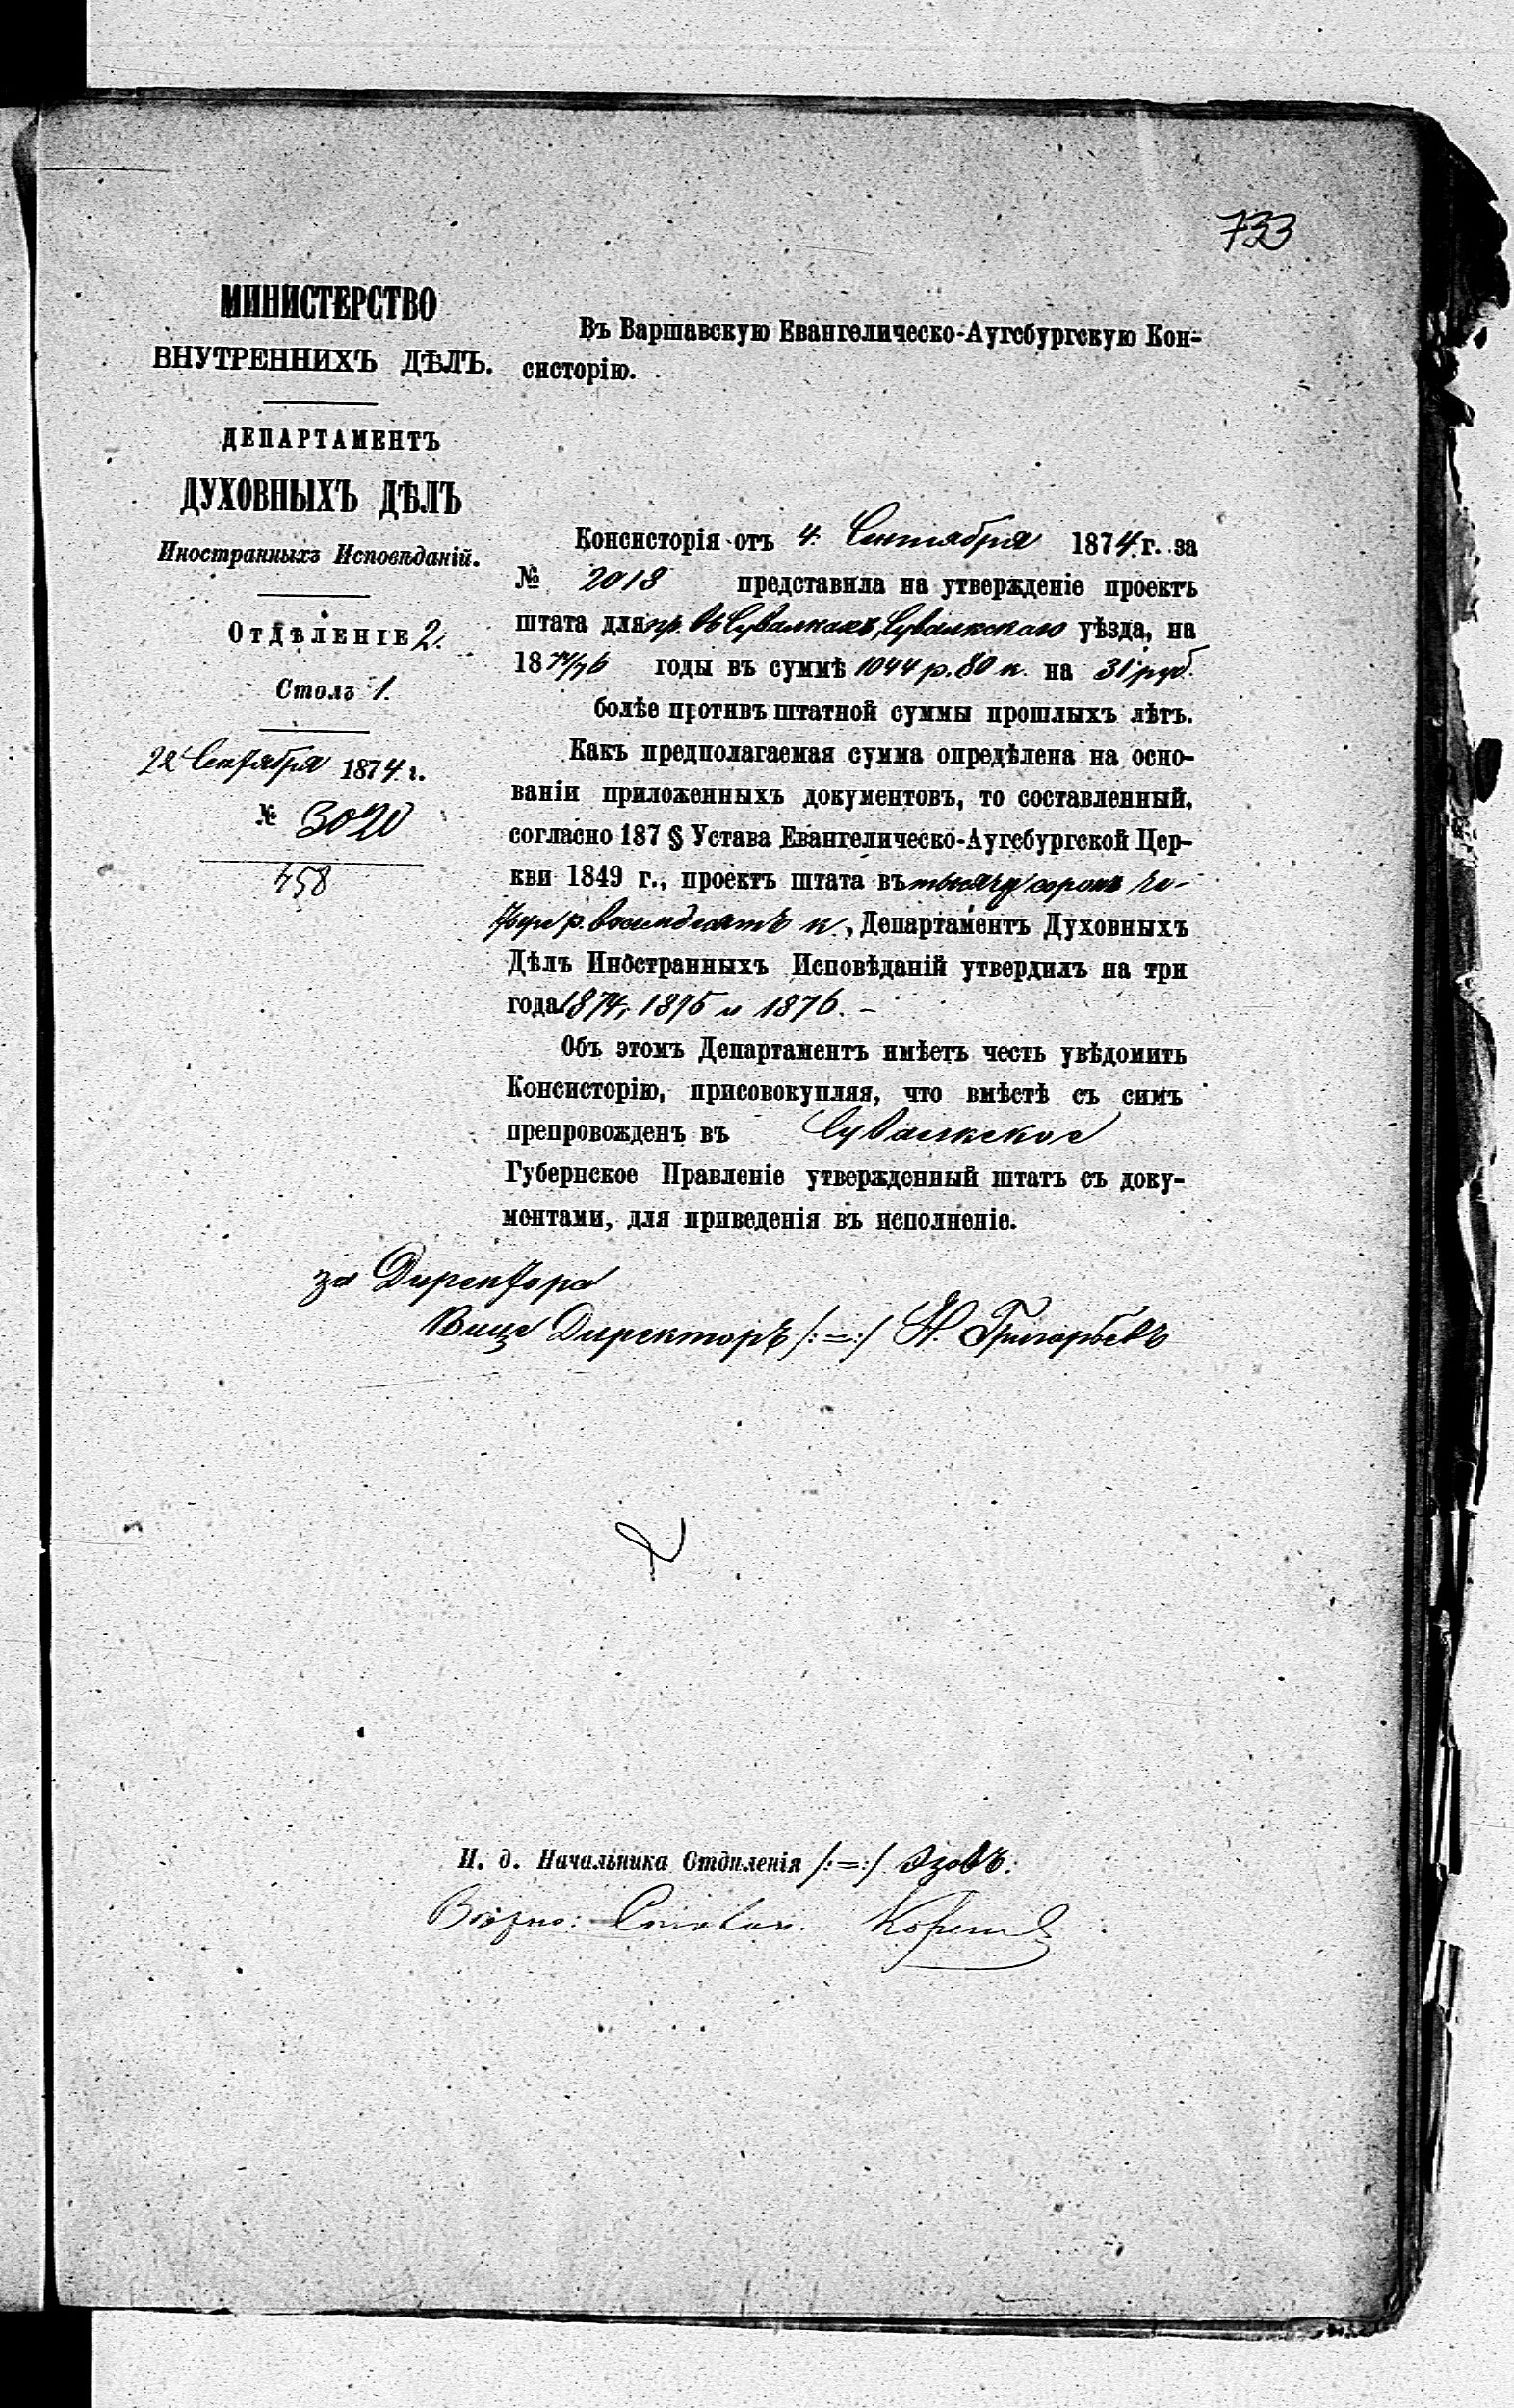 733
МИНИСТЕРСТВО
ВНУТРЕННИХЪ ДѢЛЪ.
ДЕПАРТАМЕНТЪ
ДУХОВНЫХЪ ДѢЛЪ
Иностранныхъ Исповѣданій.
ОТДѢЛЕНІЕ 2.
Столъ 1.
22 Сентября 1874 г.
№ 3020
458
Въ Варшавскую Евангелическо-Аугсбургскую Кон-
систорію.
Консисторія отъ 4. Сентября 1874. г. за
№ 2018 представила на утвержденіе проектъ
штата для пр. въ Сувалкахъ, Сувалкскаго уѣзда, на
1874/76 годы въ суммѣ 1044 р. 80 к. на 31 руб.
болѣе противъ штатной суммы прошлыхъ лѣтъ.
Какъ предполагаемая сумма опредѣлена на осно-
ваніи приложенныхъ документовъ, то составленный,
согласно 187 § Устава Евангелическо-Аугсбургской Цер-
кви 1849 г., проектъ штата въ тысячу сорокъ че-
тыре р. восемдесятъ к., Департаментъ Духовныхъ
Дѣлъ Иностранныхъ Исповѣданій утвердилъ на три
года 1874, 1875 и 1876. –
Объ этомъ Департаментъ имѣетъ честь увѣдомить
Консисторію, присовокупляя, что вмѣстѣ съ симъ
препровожденъ въ Сувалкское
Губернское Правленіе утвержденный штатъ съ доку-
ментами, для приведенія въ исполненіе.
за Директора
Вице Директоръ /:=:/ Н. Григорьевъ
И. д. Начальника Отдѣленія /:=:/ Азовъ.
Вѣрно: